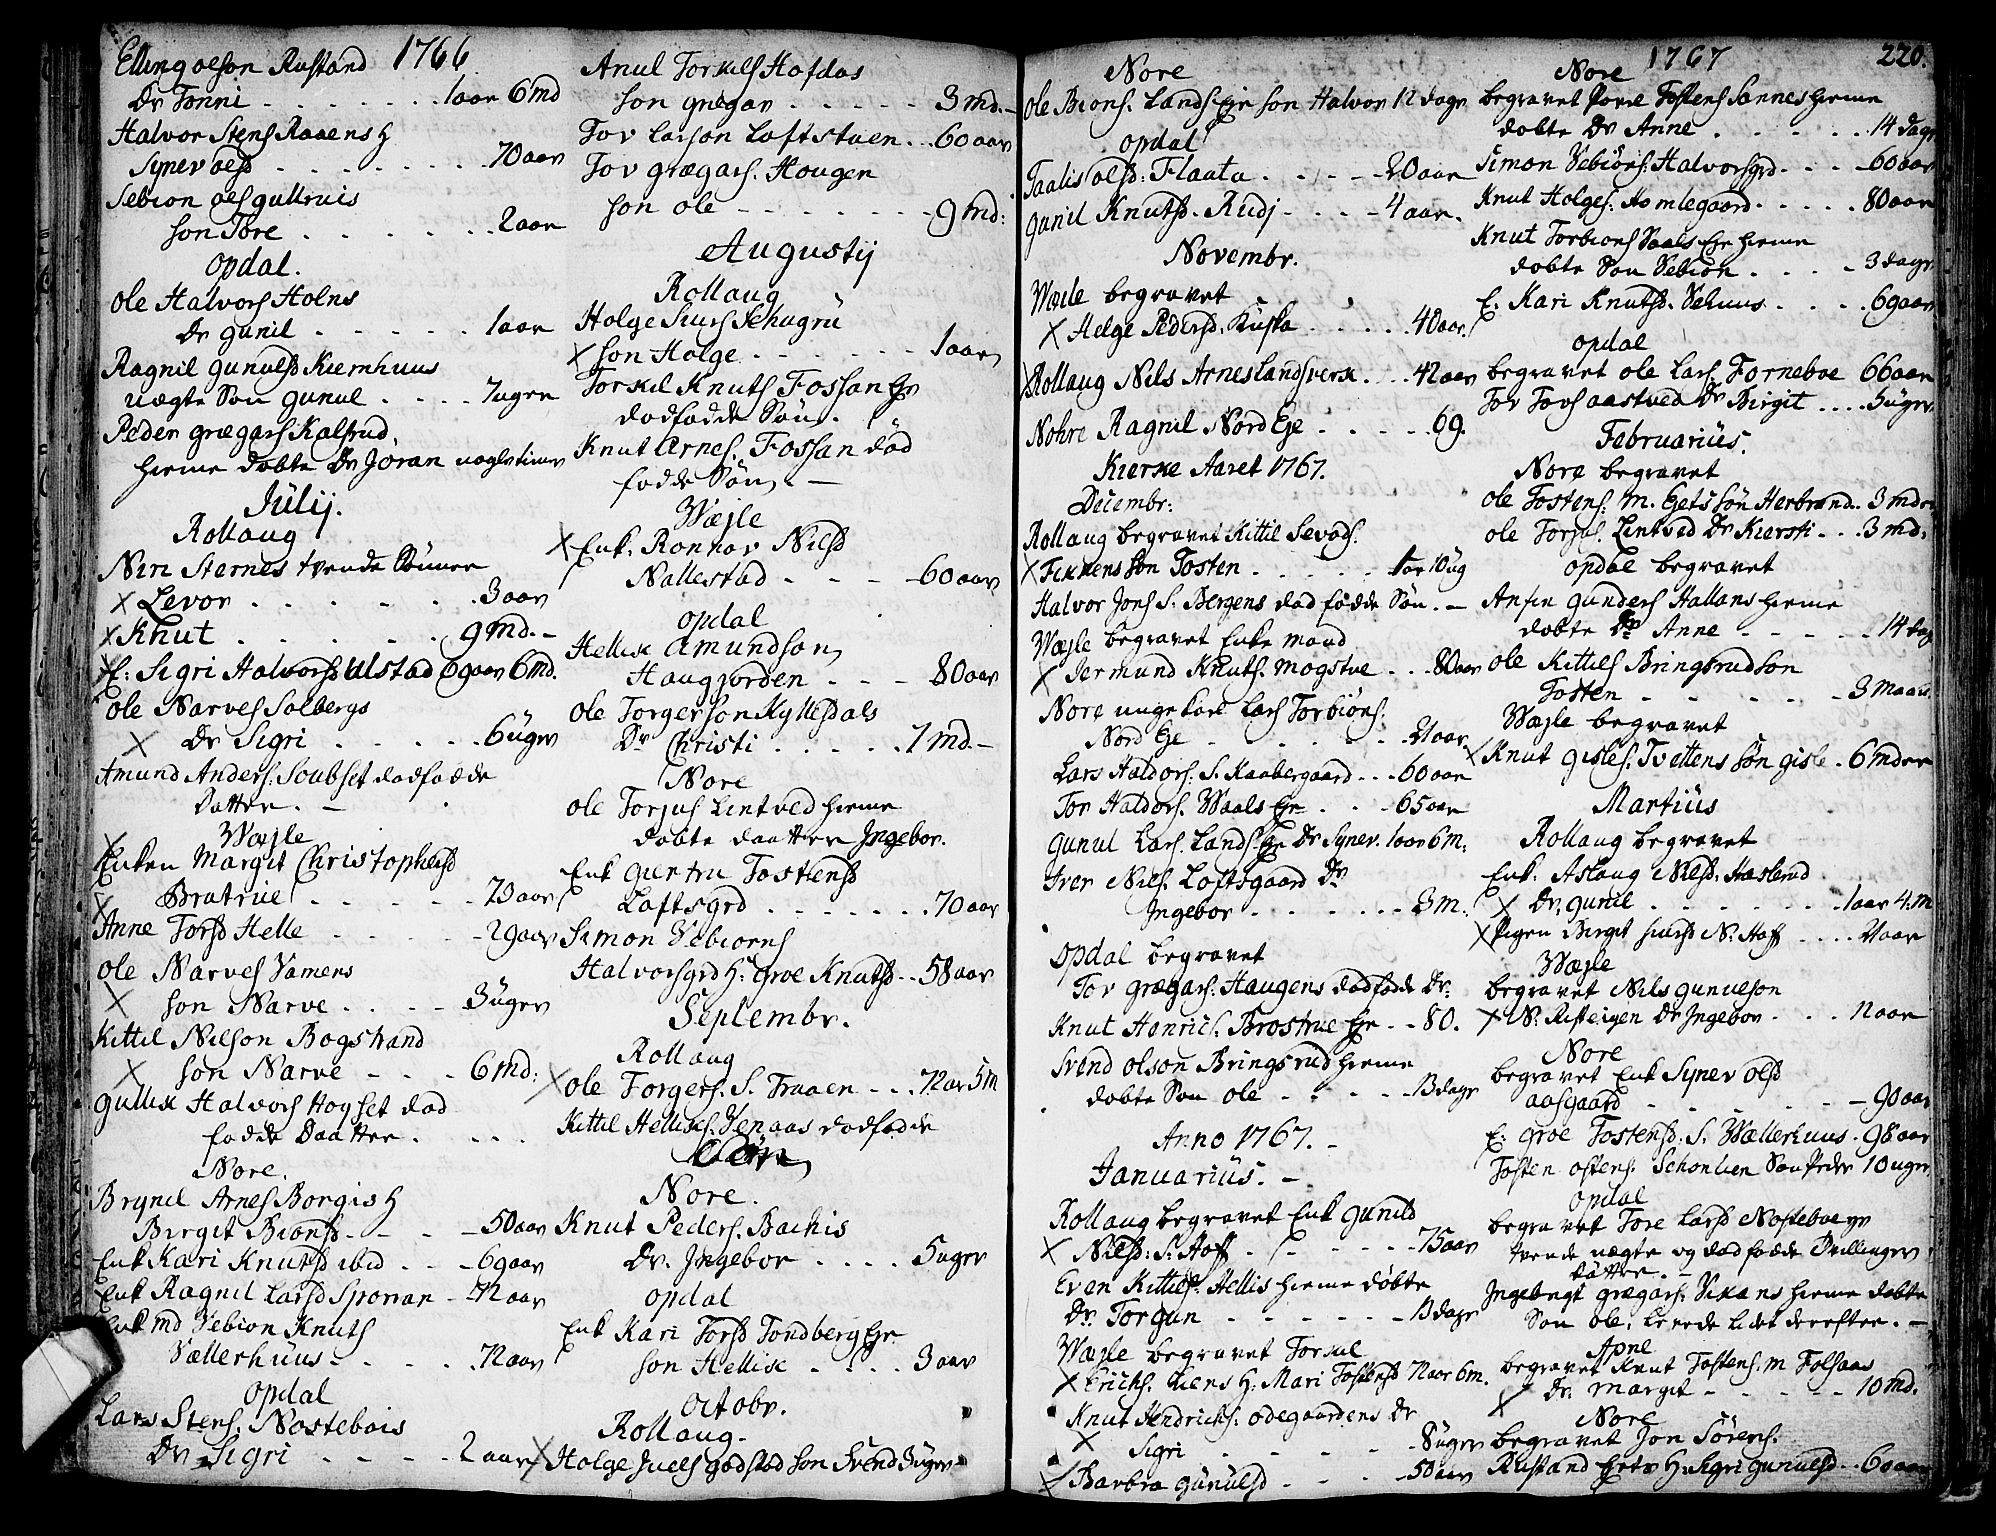 1766
Elling olson Rustand
Dr Tonni . . . 1 aar 6 md
Halvor Stens Raaens H
Synev olsd . . . 70 aar
Sebion ols gulkruis
son Tore . . . 2 aar
opdal.
ole Halvors Holns
Dr gunil . . . 1 aar
Ragnil gunulsd Kiemhuus
uægte Søn gunul . . . 7 ugen
Peder grægars Kalsrud
hieme døbte Dr Joran nogle timer
Julij.
Rollaug
Niri Sternes tvende Sønner
x Levor . . . 3 aar
x Knut . . . 9 md. -
x E: Sigri Halvorsd Ulstad 69 aar 6 md.
ole Narves Solbergs
x Dr Sigri . . . 6 uger
Amund Anders: Soubset dødfødde
Datter. -
Wæjle
x Enken Margit Christophersd
x Bratrue . . . 73 aar
Anne Torsd Helle . . . 29 aar
ole Narves Vamens
x son Narve . . . 3 uger
Kittil Nilson Bogstrand
x son Narve - - - 6 md:
gullik Halvors Høyset død
fødde Daatter . . .
Nore.
Brynil Arnes Borgis H
Birgit Bionsd - - - 50 aar
Enk Kari Knutsd ibid . . . 69 aar
Enk Ragnil Larsd Sporan - 72 aar
Enk md Vebion Knuts
Sællerhuus - . . . 72 aar
opdal
Lars Stens. Nøstebøis
Dr Sigri . . . 2 aar
Anul Torkils Hofdas
son gregar . . . 3 md. -
Tov Larson Loftstuen . . . 60 aar
Tov grægars. Hougen
son ole - - - 9 md:
Augustij
Rollaug
Holge Siurs Schugru
x son Holge . . . 1 aar
Torkil Knuts Fossan Eje
dødfødde Søn.
Knut Arnes. Fossan død
fødde Søn. -
Wæjle
x Enk. Ronnov Nilsd
Nallestad - - - 60 aar
opdal
Hellik Amundson
Haugjorden - - - 80 aar
ole Torgerson Kyllesdals
Dr Christi . . . 1 md. -
Nore
ole Torjus Lintved hieme
døbte daatter Ingebor.
Enk gurtru Tostensd
Loftsgrd . . . 70 aar
Simon Vebiorns
Halvorsgrd H: groe Knutsd . . 58 aar
Septembr.
Rollaug
x ole Torgers. S. Traaen . . . 72 aar 5 m
Kittil Helliks. Venaas dødfødde
Søn
Nore.
Knut Peders. Bachis
Dr. Ingebor . . . 5 uger
opdal
Enk Kari Torsd Tondberg Eje
son Hellik . . . 3 aar
octobr.
Rollaug.
x Holge Juels godstod son Svend 3 uger
1767
220.
Nore
ole Bions. Lands Eje son Halvor 12 dage
opdal
Taalis olsd: Flaata . . . 20 aar
gunil Knutsd. Rudj - - - 4 aar.
Novembr.
Wæjle begravet
x Helge Pedersd. Kuska . . . 40 aar.
x Rollaug Nils Arnes Landsverk . . . 42 aar
Nohre Ragnil Nord Eje . . . 69.
Kierke Aaret 1767.
Decembr:
Rollaug begravet Kittil Sevats.
x Fekkens Søn Tosten . . . 1 aar 10 ug
Halvor Jons S. Bergens dødfødde Søn. -
Wæjle begravet Enke mand
x Jermund Knuts. Mogstue . . . 80 aar
Nore unge karl Lars Torbiøns:
Nord Eje - - - 21 aar
Lars Haldors. S. Kaabergaard . . . 60 aar
Tor Haldors. Waals Eje . . . 65 aar
gunul Lars. Lands Eje Dr Synev. 1 aar 6 m:
Iver Nils. Loftsgaard Dr
Ingebor . . . 3 m.
opdal begravet
Tov grægars: Haugens dødfødde Dr:
Knut Henrics. Brostrue Eje - - 80.
Svend olson Bringsrud hieme
døbte Søn ole . . . 13 dage
Anno 1767. -
Januarius. -
Rollaug begravet Enk gunild
x Nilsd: S: Hoff . . . 75 aar
Even Kittils. Hellis hieme døbte
Dr. Torgun . . . 13 dage
Wæjle begravet Torkil
x Ericks. Liens H: Mari Tostensd 72 aar 6 m.
Knut Hendricks: odegaardens Dr
x Sigri . . . 8 uger
x Barbra gunulsd . . . 50 aar
Nore
begravet Povel Tostens Sønnes hieme
døbte Dr Anne . . . 14 dage
Simon Vebiøns: Halvorsgrd . . . 60 aar
Knut Holges: Homlegaard . . . 80 aar
Knut Torbions Waals Eje hieme
døbte Søn Vebion . . . 3 dage
E. Kari Knutsd. Vehuus . . . 69 aar
opdal
begravet ole Lars Tornebøe 66 aar
Tov Tovs aastved Dr Birgit . . . 5 uger
Februarius.
Nore begravet
ole Tostens: M. Gets søn Herbrand . 3 mdr
ole Torjus. Lintved Dr Kiersti . . . 3 md.
opdal begravet
Anfin gunders Hallans hieme
døbte Dr Anne . . . 14 dag
ole Kittils Bringsrud son
Tosten . . . 3 maan.
Wæjle begravet
x Knut gisles. Tvettens søn gisle . 6 mdr
Martius
Rollaug begravet
Enk. Aslaug Nilsd. Hæslerud
x Dr. gunil . . . 1 aar 4 m
x Pigen Birgit Siursd N: Hoff . . . 21 aar
Wæjle
begravet Nils gunulson
x N: Risteigen Dr Ingebor . . . 12 aar
Nore
begravet Enk Synev olsd
aasgaard . . . 90 aar
E: groe Tostensd: S. Wællerhuus . 98 aar
Tosten ostens. Schonlien Søn Peder 10 uger
opdal
begravet Tore Larsd Nøstebøeyn
tvende uægte og dødfødde Tvillinger
døttre. -
Ingebrigt grægars: Vikans hieme døbte
Søn ole, levede lidet derefter. -
Aprl
begravet Knut Tostens. m Folsaas
x Dr. Margit . . . 10 md.
Nore
begravet Jon Sørens.
Rustand Eyets H: Sigri gunulsd . . 60 aar